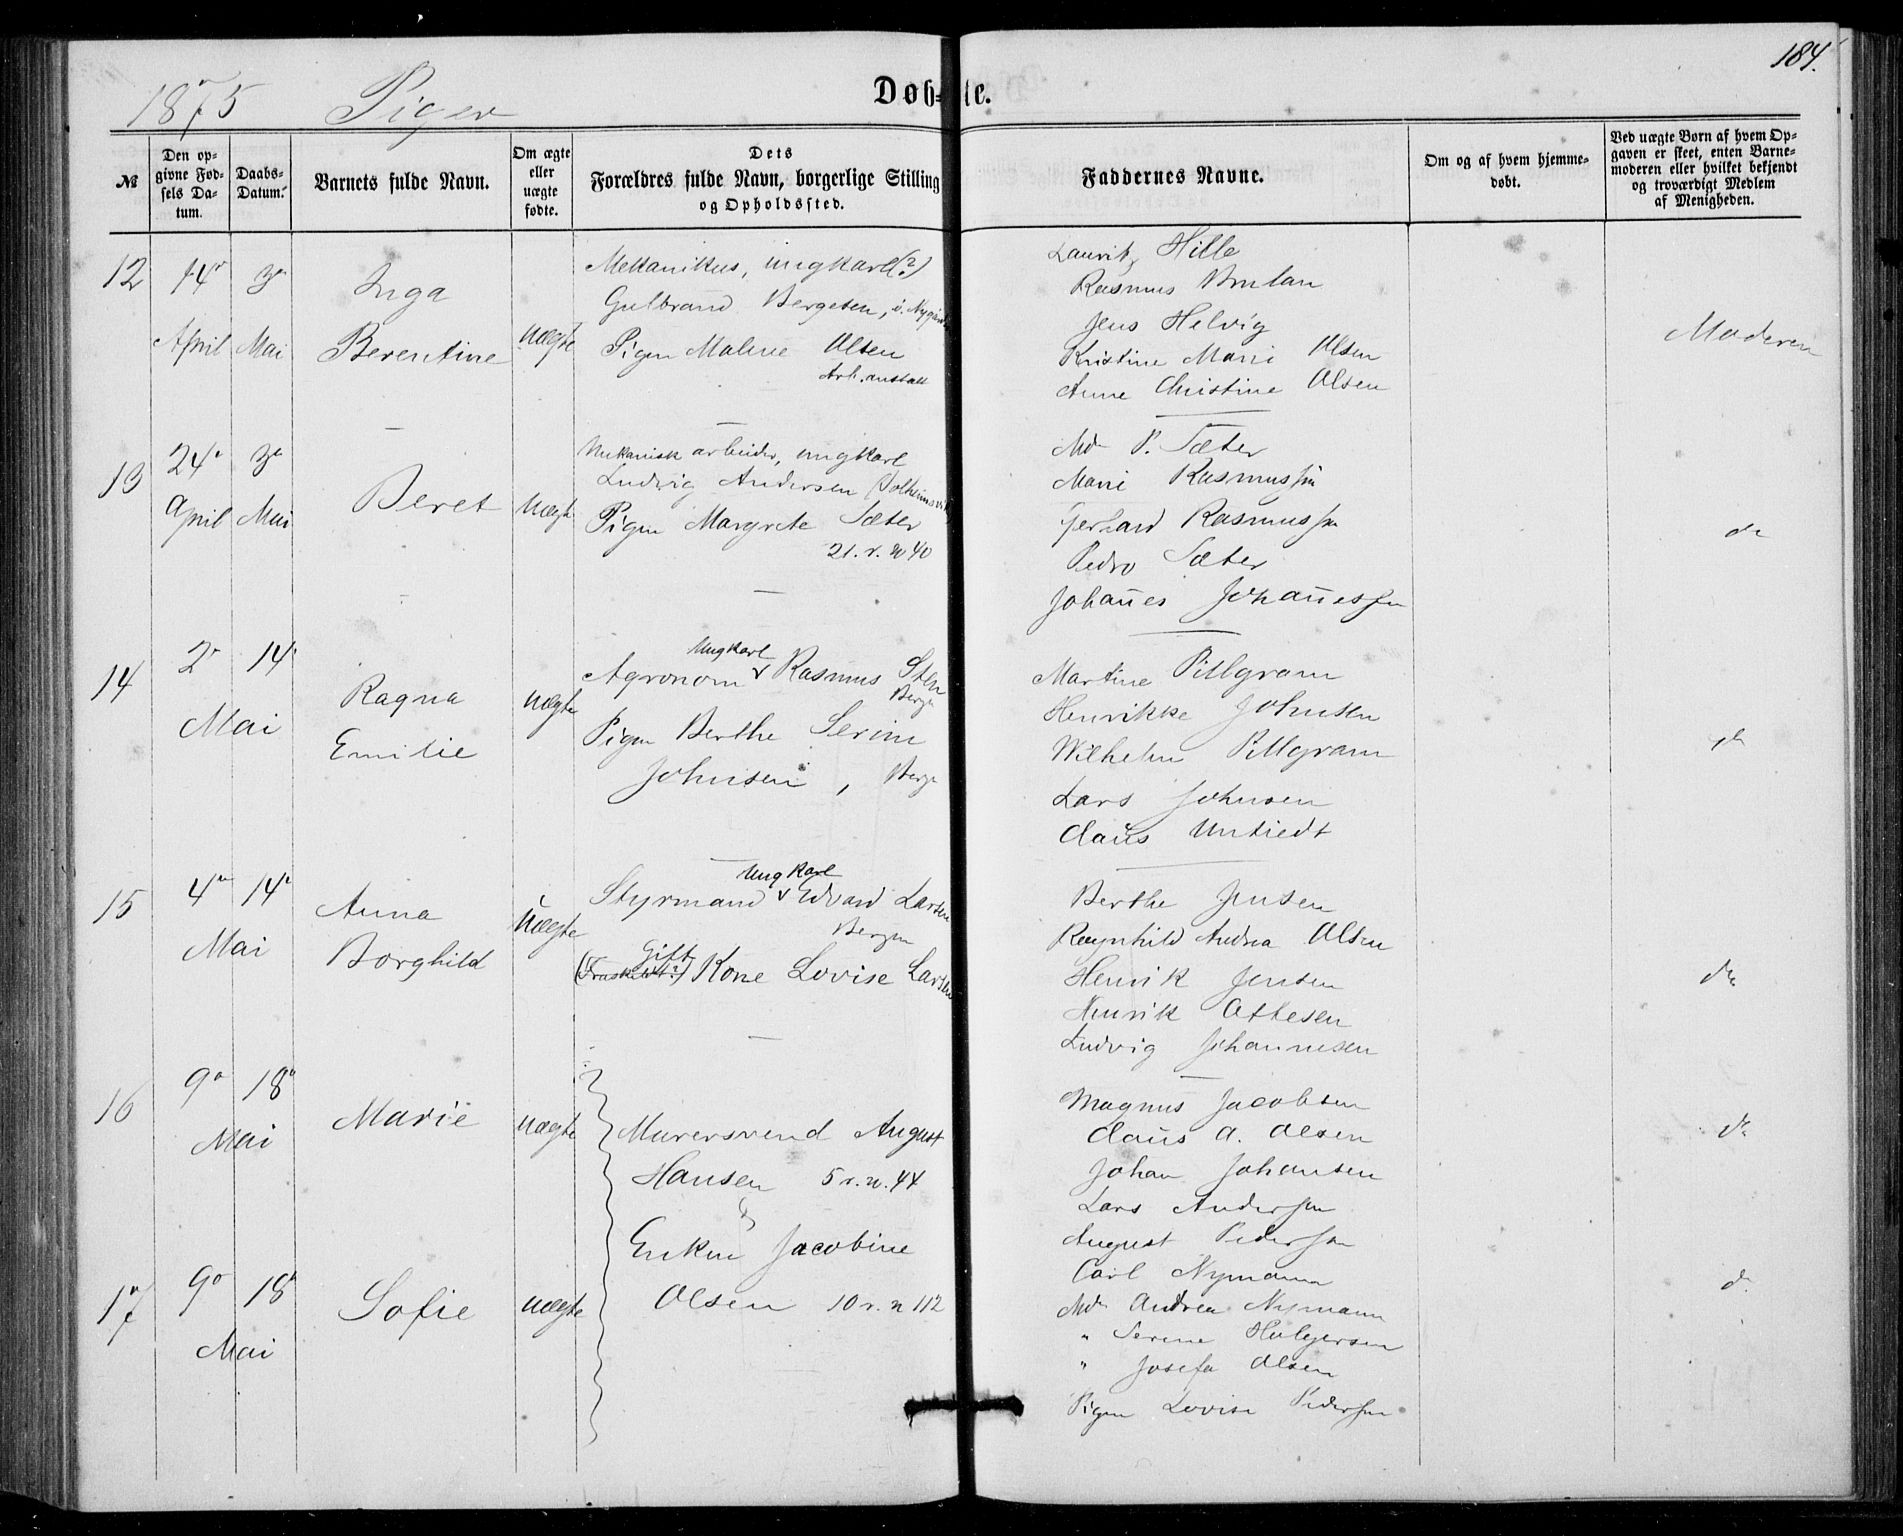 184.
1875 Piger
Døb-te.
№
Den op-
givne Fød-
sels Da-
tum.
Daabs-
Datum.
Barnets fulde Navn.
Om ægte
eller
uægte
fødte.
Dets
Forældres fulde Navn, borgerlige Stilling
og Opholdssted.
Faddernes Navne.
Om og af hvem hjemme-
døbt.
Ved uægte Børn af hvem Op-
gaven er skeet, enten Barne-
moderen eller hvilket bekjendt
og troværdigt Medlem
af Menigheden.
12
14de April
3die Mai
Inga
Berentine
uægte
Mekanikus, ungkarl(?)
Gulbrand Bergesen,
Pigen Malene Olsen
Arb.anstalt
Lauritz Hille
Rasmus
Jens Helvig
Kristine Marie Olsen
Anne Christine Olsen
Moderen
13
24de April
3die Mai
Beret
uægte
Mekanisk arbeider, ungkarl
Ludvig Andersen
Pigen Margrete Sæter
21. r. n 40
Md. P. Sæter
Marie Rasmussen
Gerhard Rasmussen
Pedro Sæter
Johañes Johañessen
do
14
2den 14de
Mai
Ragna
Emilie
uægte
Ungkarl
Agronom v Rasmus Sten
Bergen
Pigen Berthe Serine
Johnsen, Bergen
Martine Pillgram
Henrikke Johnsen
Wilhelm Pillgram
Lars Johnsen
Claus Untiedt
do
15
4de 14de
Mai
Anna
Borghild
Uægte
Ungkarl
Styrmand v Edvard Larsen
Bergen
Gift
(Fraskilt?) Kone Lovise Larsen
Berthe Jensen
Ragnhild Andrea Olsen
Henrik Jensen
Henrik Ottesen
Ludvig Johannesen
do
16
9de 18de
Mai
Marie
uægte
Murersvend August
Hansen 5 r. n. 44
&
Enken Jacobine
Olsen 10 r. n 112
Magnus Jacobsen
Claus A. Olsen
Johan Johansen
Lars Andersen
August Pedersen
do
17
9de 18de
Mai
Sofie
uægte
Carl Nymann
Md. Andrea Nymann
" Serine Holgersen
" Josefa Olsen
Pigen Lovise Pedersen
do